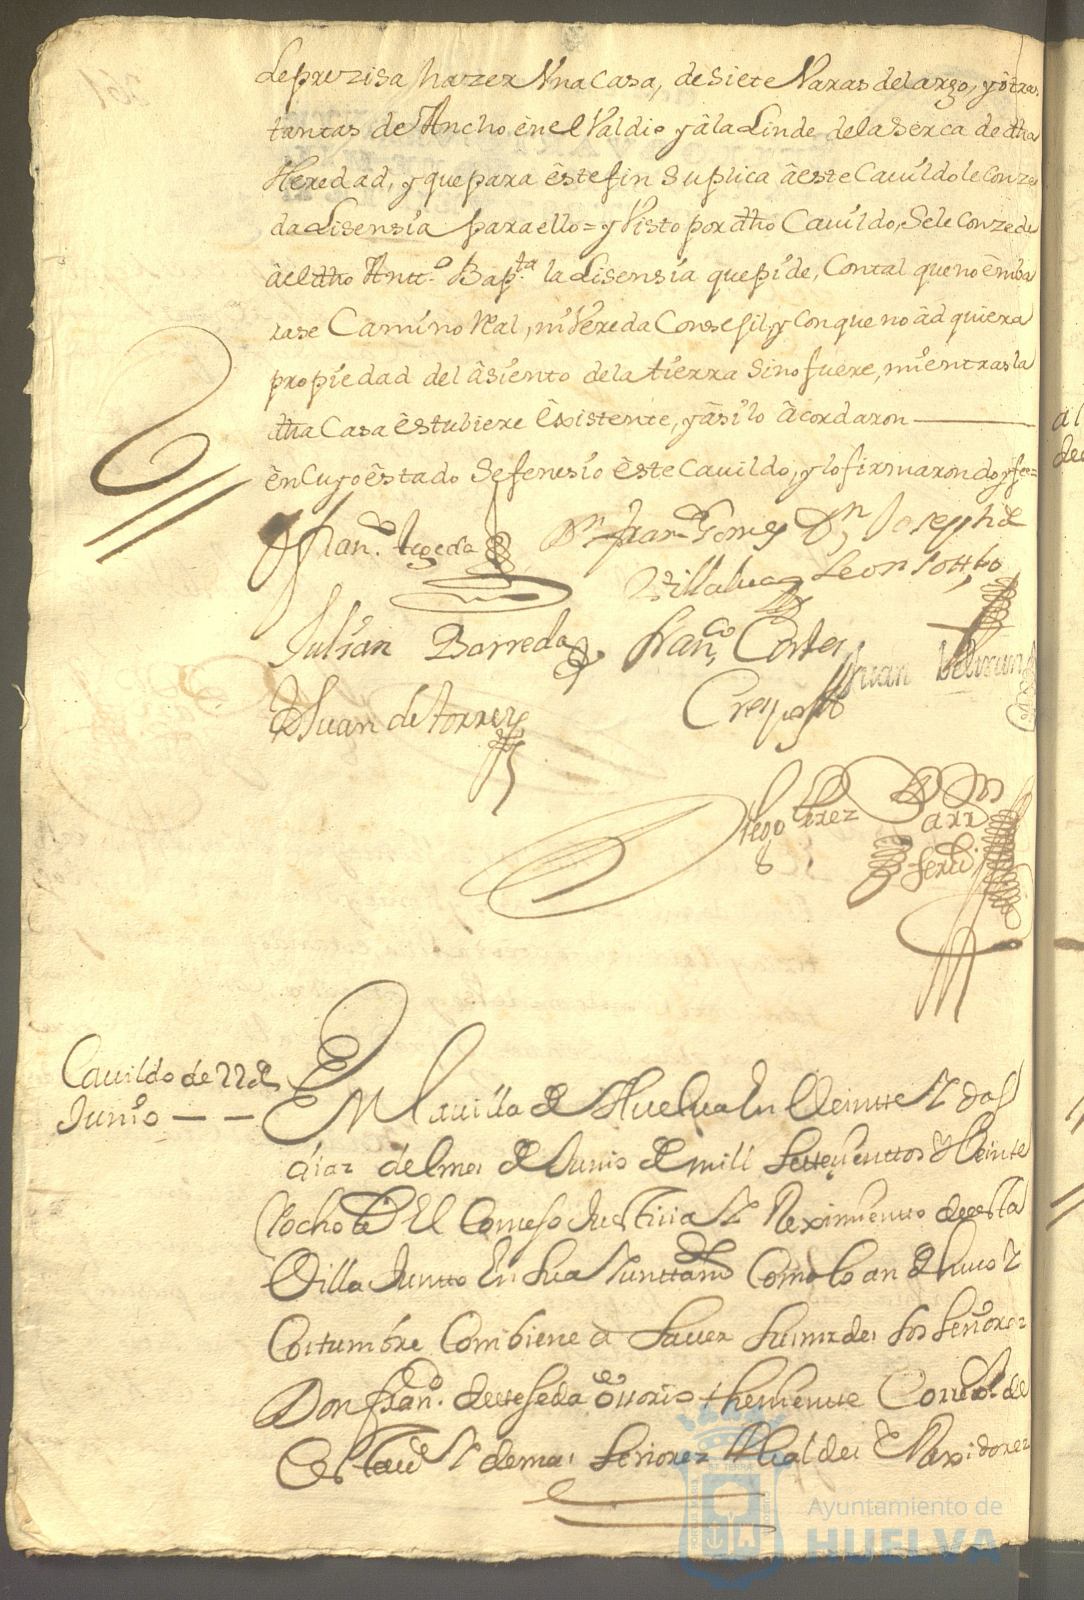 Le prezisa hazer Vna Casa, de siete Varas de largo, y otras
tantas de Ancho en el Valdio y a la Linde de la serca de dha
Heredad, y que para este fin suplica a este Cavildo le conze
da Lisensia para ello = y Visto por dho Cavildo, Se le Conzede
a el dho Antt.o Bap.ta la Lisensia que pide, Con tal que no emba
rase Camino Real, ni Vereda Consegil, y con que no adquiera
propiedad del asiento de la tierra sino fuere, mientras la
dha Casa estubiere Existente, y asi lo acordaron
en Cuyo estado se fenesio este Cavildo, y lo firmaron doy fee=
Fran.co tegeda
Dn Fran.co Gomez
Dn Joseph de
Villalua
Leon
Julian Barreda
Fran.co Cortes
Crespo
Juan Beltran
Juan de torres
Diego Perez
Cavildo de 22 de
Junio
En la villa de Huelva En Veinte Y dos
dias del mes de Junio de mill settesienttos & Veinte
Y ocho El Consejo Justicia Y Reximiento de esta
Villa Juntto En su a Iunttam.to Como lo an de husso Y
Costumbre Combiene a Saver Su mrdes los señores
Don fran.co de teseda ossorio theniente Correx.or de
Esta Y demas señores Alcaldes E Rexidores
Ayuntamiento de
HUELVA